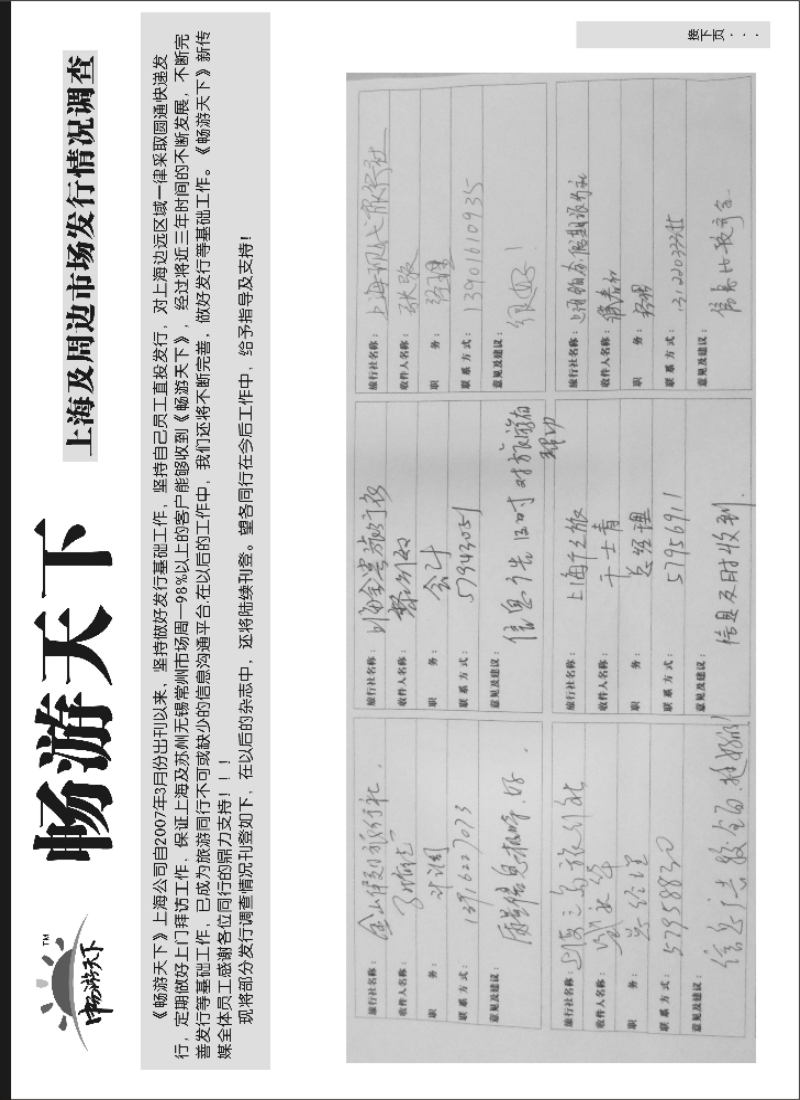 畅游天下
TM
畅游天下
上海及周边市场发行情况调查
《畅游天下》上海公司自2007年3月份出刊以来，坚持做好发行基础工作，坚持自己员工直投发行，对上海边远区域一律采取圆通快递发
行，定期做好上门拜访工作，保证上海及苏州无锡常州市场周一98%以上的客户能够收到《畅游天下》，经过将近三年时间的不断发展，不断完
善发行等基础工作，已成为旅游同行不可或缺少的信息沟通平台.在以后的工作中，我们还将不断完善，做好发行等基础工作。《畅游天下》新传
媒全体员工感谢各位同行的鼎力支持！！！
现将部分发行调查情况刊登如下，在以后的杂志中，还将陆续刊登。望各同行在今后工作中，给予指导及支持！
旅行社名称：金山假日旅行社.
收件人名称：
职 务：计调
联系方式：
意见及建议：
旅行社名称：
收件人名称：
职 务：会计
联系方式：57943051
意见及建议：
旅行社名称：上海现代旅行社
收件人名称：张敏
职 务：经理
联系方式：13901610935
意见及建议：
很好！
旅行社名称：上海三岛旅行社
收件人名称：
职 务：总经理
联系方式：57958830
意见及建议：
旅行社名称：
收件人名称：于士青
职 务：总经理
联系方式：57956911
意见及建议：
信息及时收到.
旅行社名称：
收件人名称：
职 务：经理
联系方式：
意见及建议：
信息比较齐全.
接下页...